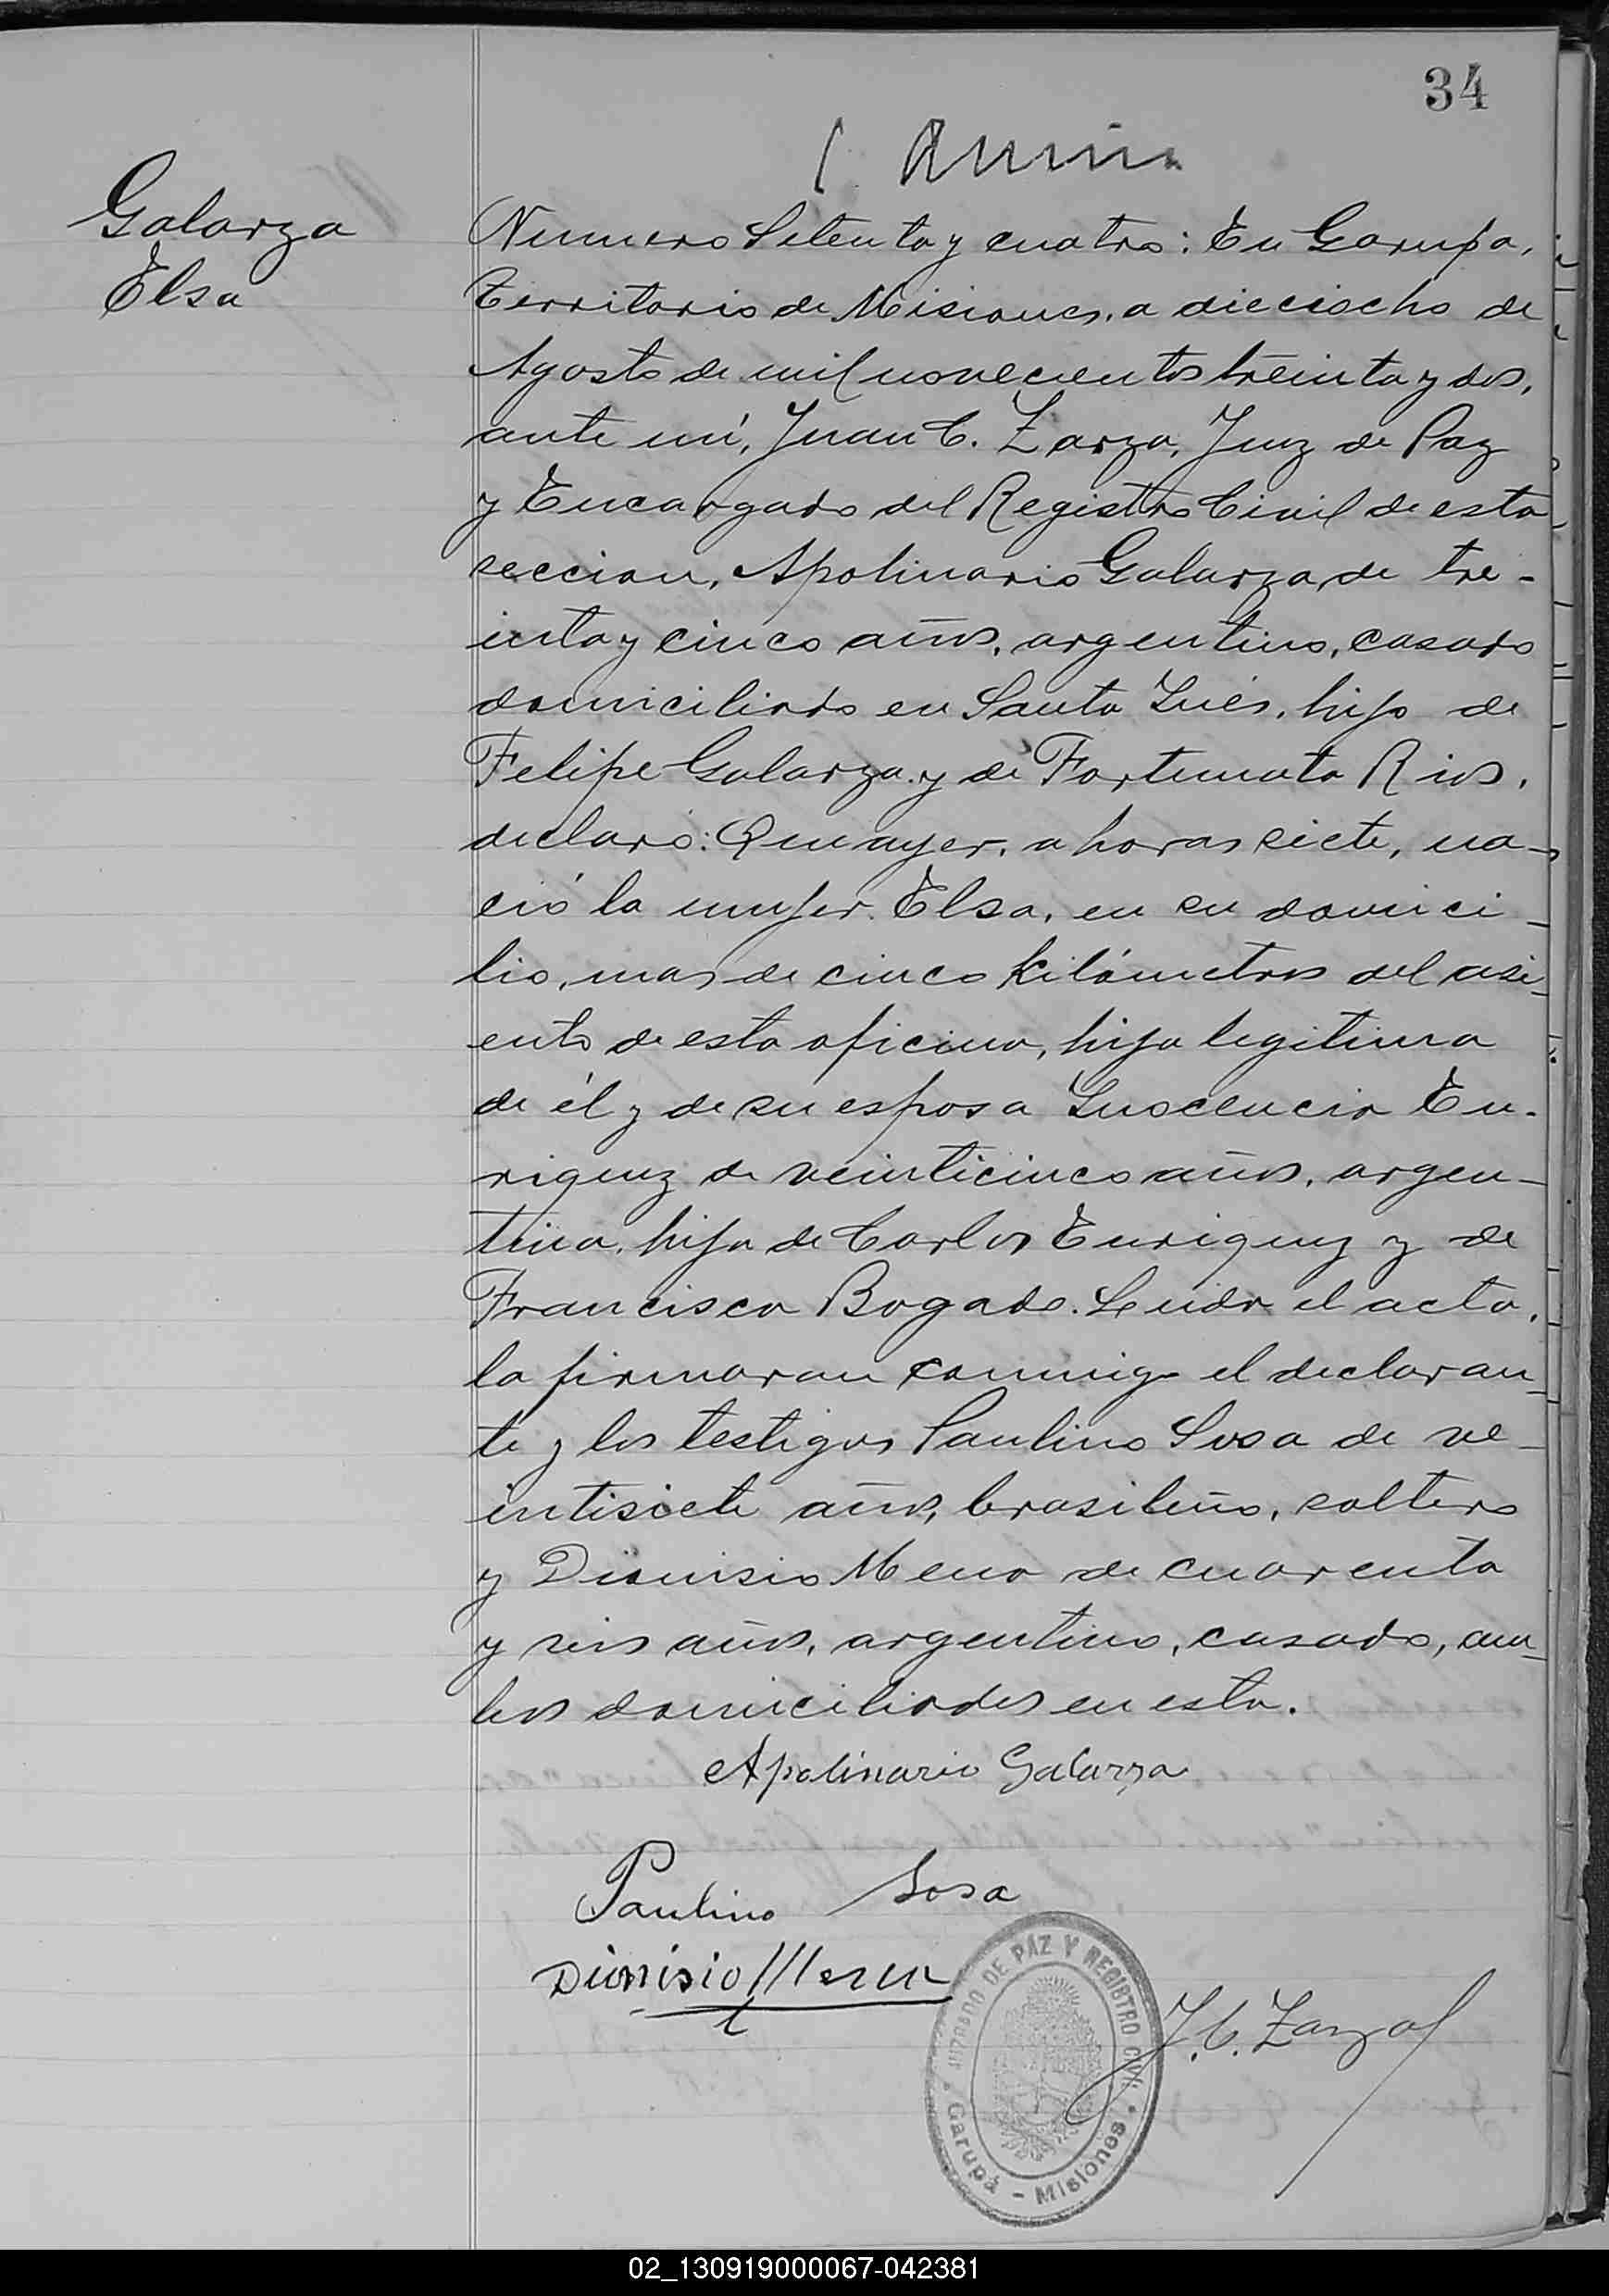 34
Galarza
Elsa
Numero Setenta y cuatro: En Garupa,
Territorio de Misiones, a dieciocho de
Agosto de mil novecientos treinta y dos,
ante mí, Juan C. Zarza, Juez de Paz
y Encargado del Registro Civil de esta
seccion, Apolinario Galarza, de tre-
inta y cinco años, argentino, casado
domiciliado en Santa Inés, hijo de
Felipe Galarza y de Fortunata Rios,
declaró: Que ayer, a horas siete, na-
ció la mujer Elsa, en su domici-
lio, mas de cinco kilómetros del asi-
ento de esta oficina, hija legitima
de él y de su esposa Inocencia En-
riquez de veinticinco años, argen-
tina, hija de Carlos Enriquez y de
Francisca Bogado. Leida el acta,
la firmaran conmigo el declaran-
te y los testigos Paulino Sosa de ve-
intisiete años, brasileño, soltero
y Dionisio Mena de cuarenta
y seis años, argentino, casado, am-
bos domiciliados en esta.
Apolinario Galarza
Paulino Sosa
Dionisio Mena
JUZGADO DE PAZ Y REGISTRO CIVIL
Garupá - Misiones
J. C. Zarza
02_130919000067-042381